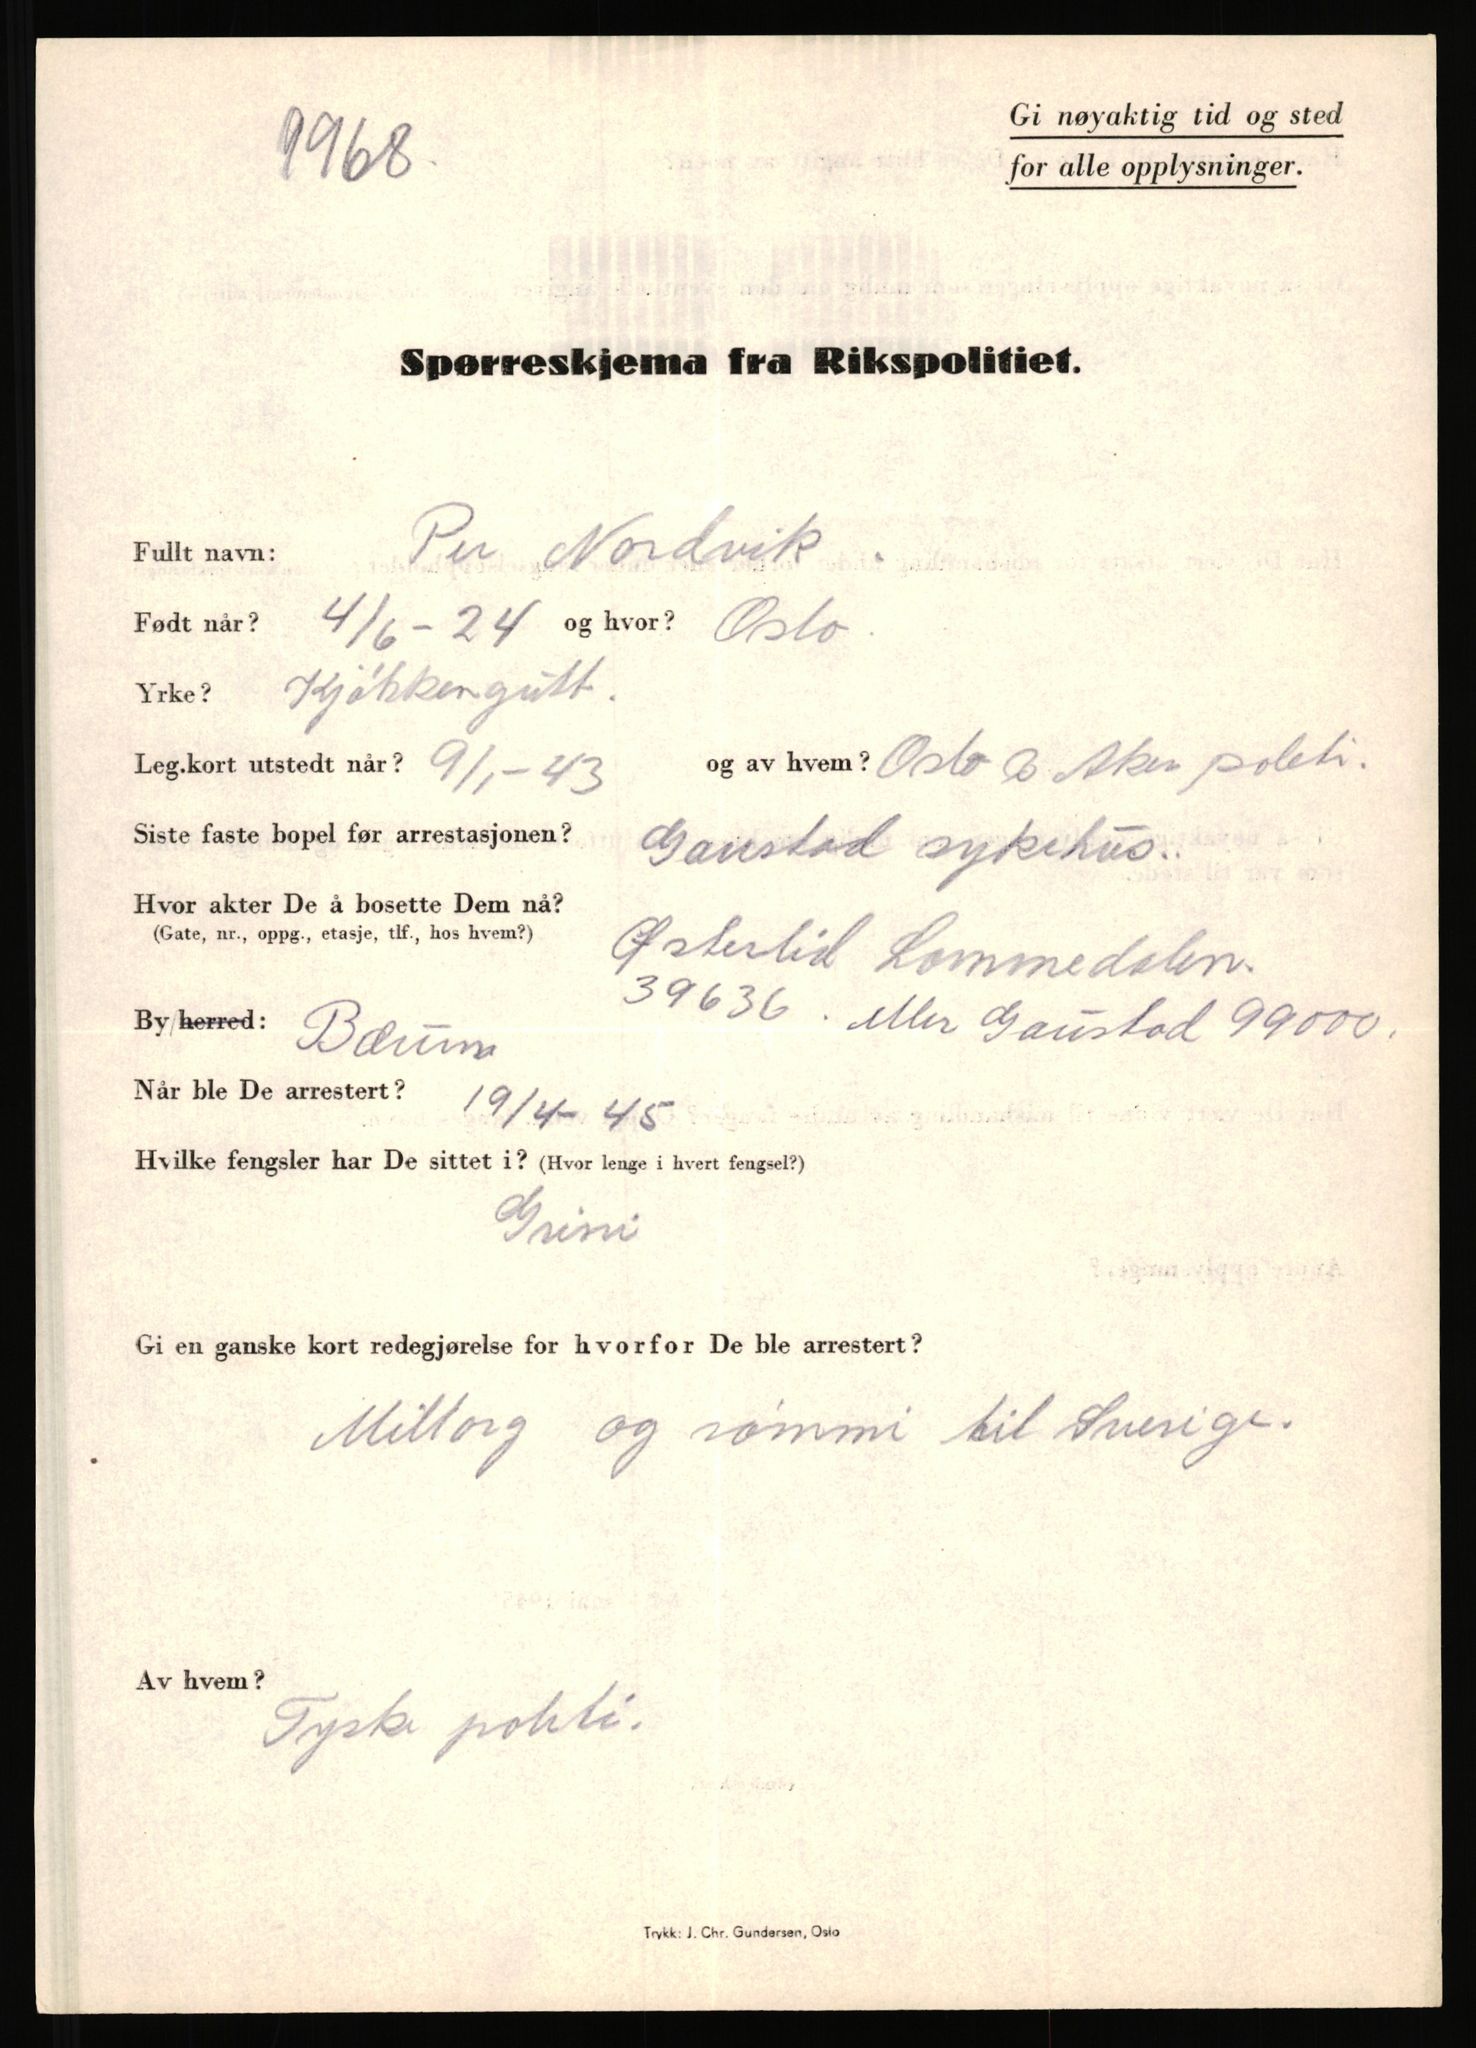 9968.
Gi nøyaktig tid og sted
for alle opplysninger.
Spørreskjema fra Rikspolitiet.
Fullt navn: Per Nordvik.
Født når? 4/6-24 og hvor? Oslo.
Yrke? Kjøkkengutt.
Leg.kort utstedt når? 9/1-43 og av hvem? Oslo & Aker politi.
Siste faste bopel før arrestasjonen? Gaustad sykehus..
Hvor akter De å bosette Dem nå?
(Gate, nr., oppg., etasje, tlf., hos hvem?) Østerlid Lommedalen.
39636. eller Gaustad 99000.
By/herred: Bærum
Når ble De arrestert? 19/4-45
Hvilke fengsler har De sittet i? (Hvor lenge i hvert fengsel?)
Grini
Gi en ganske kort redegjørelse for hvorfor De ble arrestert?
Milorg og rømmi til Sverige.
Av hvem?
Tyske politi.
Trykk: J. Chr. Gundersen, Oslo